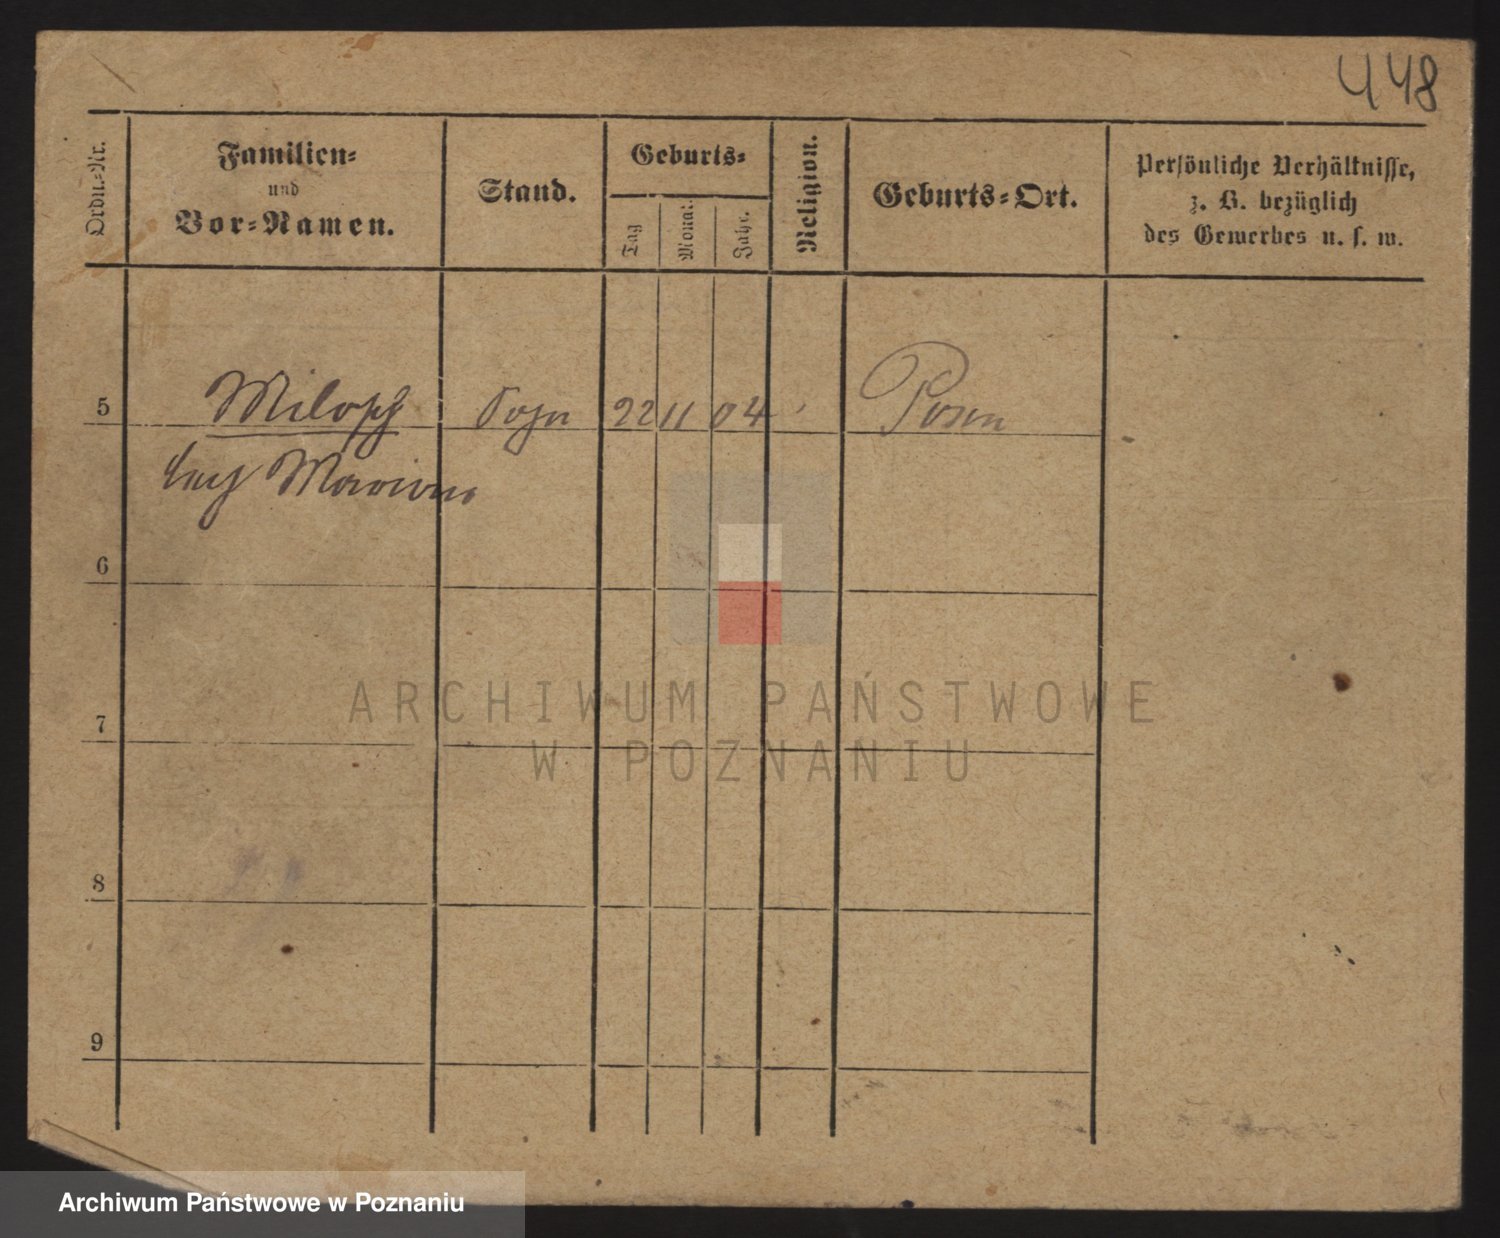 448
Ordn.-Nr.
Familien-
und
Vor-Namen.
Stand.
Geburts-
Tag
Monat
Jahr.
Religion.
Geburts-Ort.
Persönliche Verhältnisse,
z. B. bezüglich
des Gewerbes u. s. w.
5 Milosch Sohn 22 11 04 Posen
Marian
6
7
8
9
ARCHIWUM PAŃSTWOWE
W POZNANIU
Archiwum Państwowe w Poznaniu